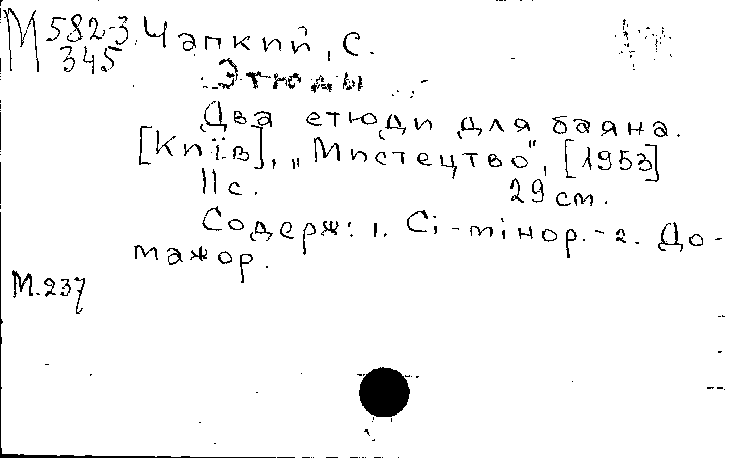 М 582-3 Чапкий, С.
345
Этюды
Два етюди для баяна.
[Київ], „Мистецтво", [1953]
11 с. 29 см.
Содерж: 1. Сі-мінор. - 2. До-
мажор.
М.237